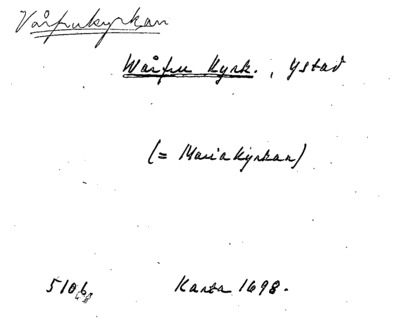 Vårfrukyrkan
Wårfru Kyrk., Ystad
(= Mariakyrkan)
5106 Karta 1698.